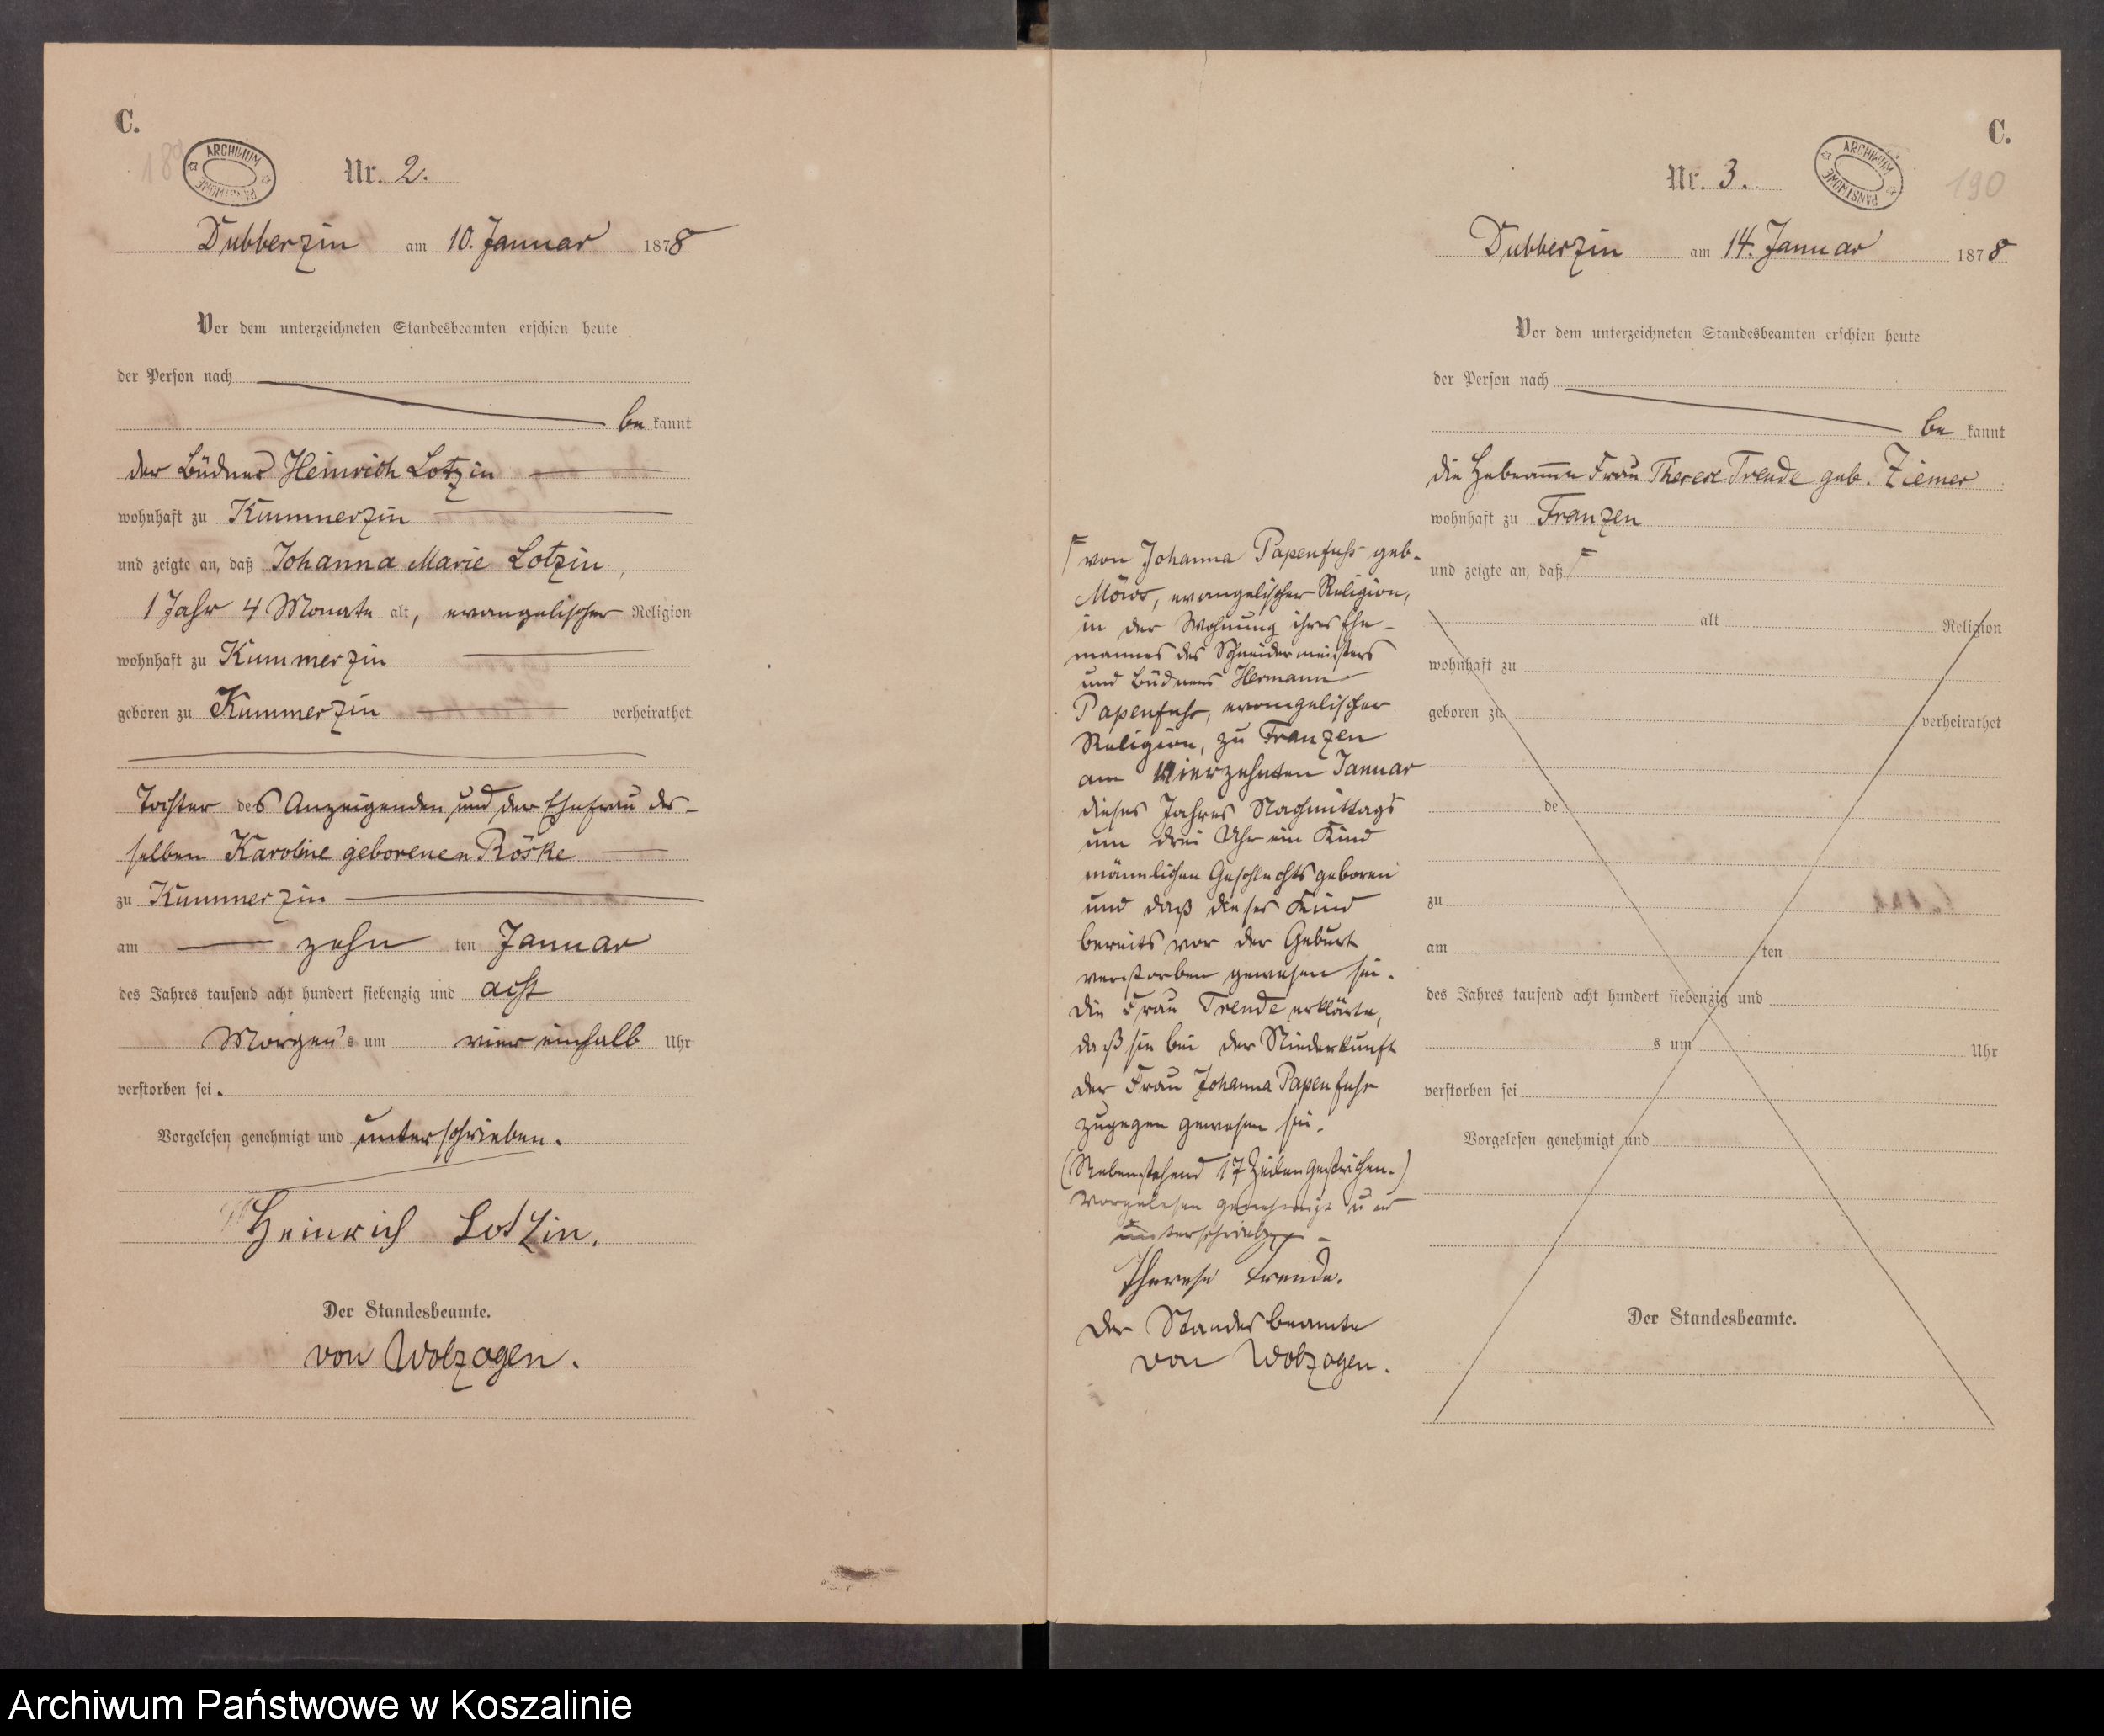 C.
189
ARCHIWUM PAŃSTWOWE
Nr. 2.
Dubberzin am 10. Januar 1878
Vor dem unterzeichneten Standesbeamten erschien heute
der Person nach
be kannt
der Büdner Heinrich Lotzin
wohnhaft zu Kummerzin
und zeigte an, daß Johanna Marie Lotzin,
1 Jahr 4 Monate alt, evangelischer Religion
wohnhaft zu Kummerzin
geboren zu Kummerzin verheirathet
Tochter des Anzeigenden und der Ehefrau des-
selben Karoline geborenen Röske
zu Kummerzin
am zehn ten Januar
des Jahres tausend acht hundert siebenzig und acht
Morgens um vier einhalb Uhr
verstorben sei.
Vorgelesen, genehmigt und unterschrieben.
Heinrich Lotzin.
Der Standesbeamte.
von Wolzogen.
C.
190
ARCHIWUM PAŃSTWOWE
Nr. 3.
Dubberzin am 14. Januar 1878
Vor dem unterzeichneten Standesbeamten erschien heute
der Person nach
be kannt
die Hebeamme Frau Therese Trende geb. Ziemer
wohnhaft zu Franzen
und zeigte an, daß
alt Religion
wohnhaft zu
geboren zu verheirathet
de
zu
am ten
des Jahres tausend acht hundert siebenzig und
s um Uhr
verstorben sei
Vorgelesen genehmigt und
Der Standesbeamte.
von Johanna Papenfuhs geb.
evangelischer Religion,
in der Wohnung ihres Ehe-
mannes des Schneidermeisters
und Büdners Hermann
Papenfuhs, evangelischer
Religion, zu Franzen
am vierzehnten Januar
dieses Jahres Nachmittags
um drei Uhr ein Kind
männlichen Geschlechts geboren
und daß dieses Kind
bereits vor der Geburt
verstorben gewesen sei.
Die Frau Trende erklärte,
daß sie bei der Niederkunft
der Frau Johanna Papenfuhs
zugegen gewesen sei.
(Nebenstehend 17 Zeilen gestrichen.)
Vorgelesen genehmigt und
unterschrieben -
Therese Trende.
Der Standesbeamte
von Wolzogen.
Archiwum Państwowe w Koszalinie